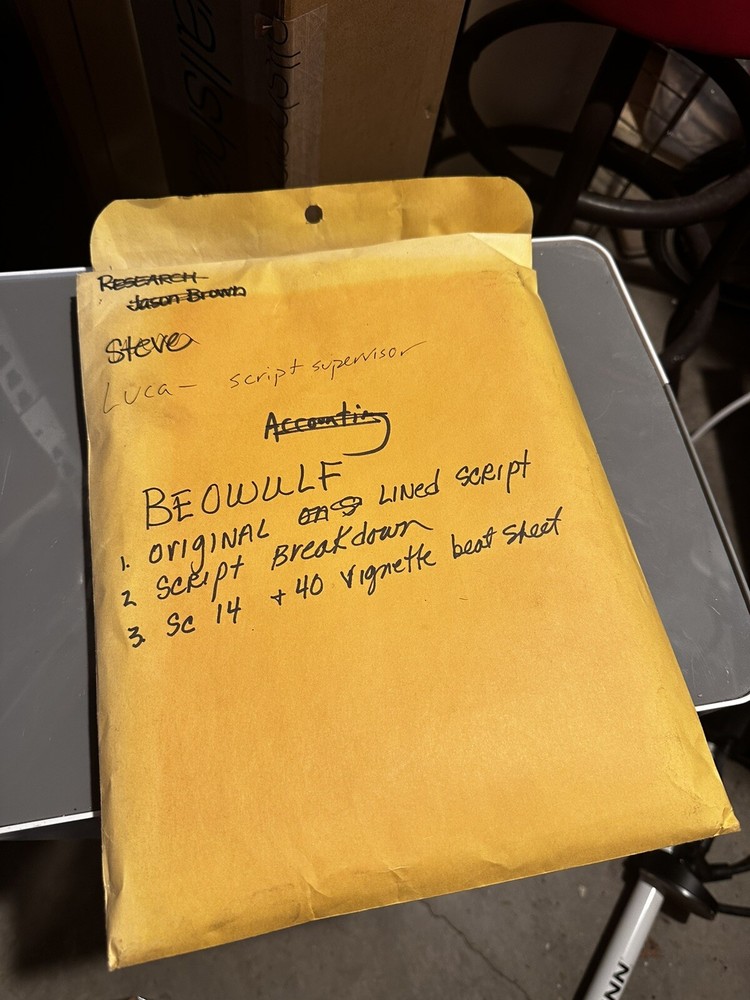 RESEARCH
Jason Brown
Steve
Luca - script supervisor
Accounting
BEOWULF
1. ORIGINAL LINED SCRIPT
2 SCRIPT Breakdown
3. Sc 14 + 40 Vignette beat sheet
NN